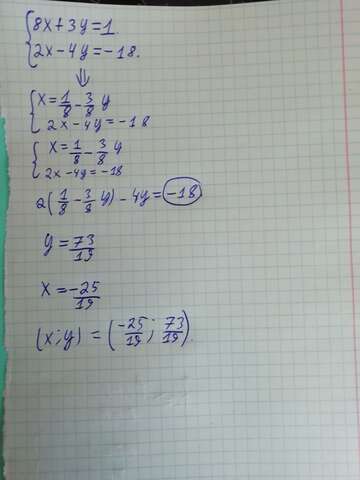 8x+3y=1.
2x-4y=-18.
⇓
x=1/8-3/8 y
2x-4y=-18
x=1/8-3/8 y
2x-4y=-18
2(1/8-3/8 y)-4y=-18
y=73/19
x=-25/19
(x;y)=(-25/19; 73/19).